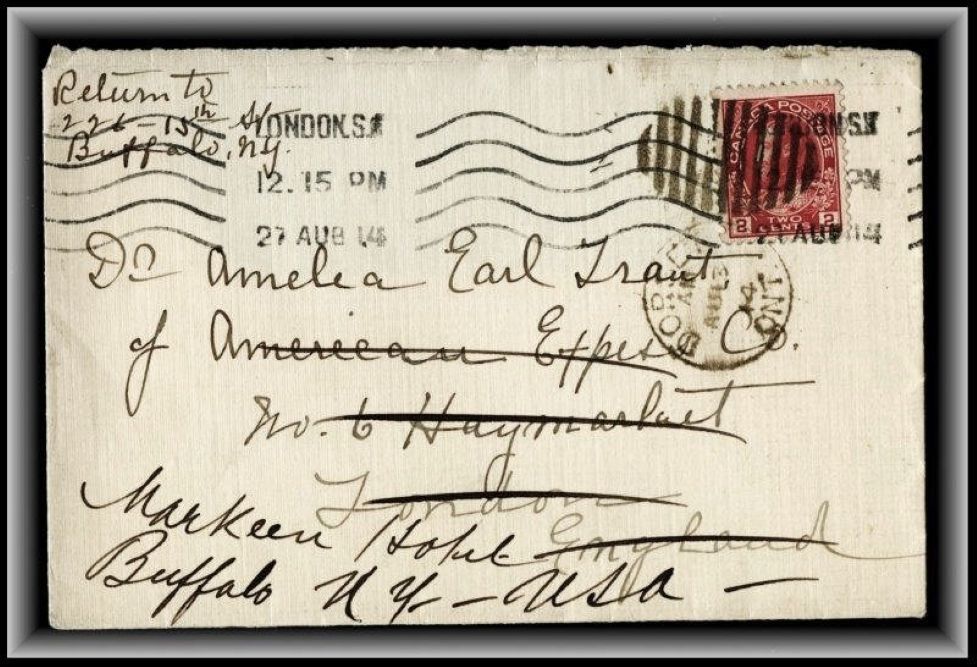 Return to
226 - 15th St
Buffalo, N.Y.
LONDON.S.W
12.15 PM
27 AUG 14
CANADA POSTAGE
2 TWO CENTS 2
Dr Amelia Earl Trant
of American Expess Co.
No. 6 Haymarket
London
England
Markeen Hotel
Buffalo N Y - USA -
AU 13
14
ONT